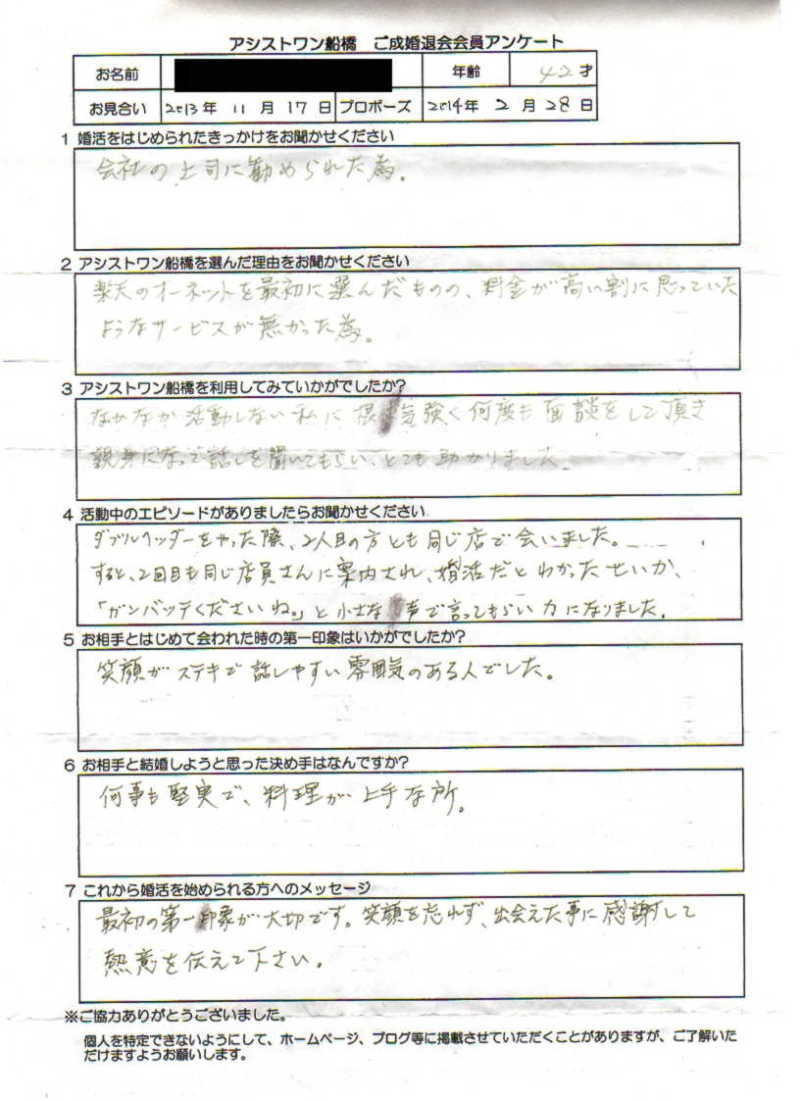 アシストワン船橋 ご成婚退会会員アンケート
お名前 年齢 42才
お見合い 2013年 11月 17日 プロポーズ 2014年 2月 28日
1 婚活をはじめられたきっかけをお聞かせください
会社の上司に勧められた為。
2 アシストワン船橋を選んだ理由をお聞かせください
楽天のオーネットを最初に選んだものの、料金が高い割に思っていた
ようなサービスが無かった為。
3 アシストワン船橋を利用してみていかがでしたか?
なかなか活動しない私に根気強く何度も面談をして頂き
親身になって話しを聞いてもらい、とても助かりました。
4 活動中のエピソードがありましたらお聞かせください
ダブルヘッダーをやった際、2人目の方とも同じ店で会いました。
すると、2回目も同じ店員さんに案内され、婚活だとわかったせいか、
「ガンバッテくださいね。」と小さな声で言ってもらい力になりました。
5 お相手とはじめて会われた時の第一印象はいかがでしたか?
笑顔がステキで話しやすい雰囲気のある人でした。
6 お相手と結婚しようと思った決め手はなんですか?
何事も堅実で、料理が上手な所。
7 これから婚活を始められる方へのメッセージ
最初の第一印象が大切です。笑顔を忘れず、出会えた事に感謝して
熱意を伝えて下さい。
※ご協力ありがとうございました。
個人を特定できないようにして、ホームページ、ブログ等に掲載させていただくことがありますが、ご了解いた
だけますようお願いします。